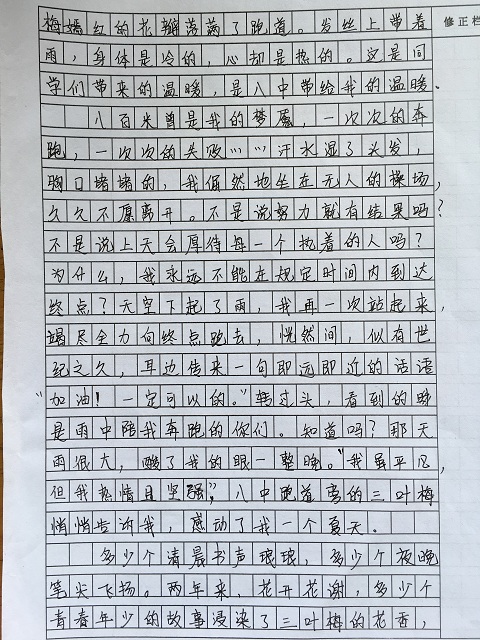 梅嫣红的花瓣落满了跑道。发丝上带着
修正栏
雨，身体是冷的，心却是热的。这是同
学们带来的温暖，是八中带给我的温暖。
八百米曾是我的梦魇，一次次的奔
跑，一次次的失败……汗水湿了头发，
胸口堵堵的，我偶然地坐在无人的操场，
久久不愿离开。不是说努力就有结果吗？
不是说上天会厚待每一个执着的人吗？
为什么，我永远不能在规定时间内到达
终点？天空下起了雨，我再一次站起来，
竭尽全力向终点跑去，恍然间，似有世
纪之久，耳边传来一句即远即近的话语
“加油！一定可以的。”转过头，看到的竟
是雨中陪我奔跑的你们。知道吗？那天
雨很大，酸了我的眼一整晚。“我虽平凡，
但我热情且坚强”，八中跑道旁的三叶梅
悄悄告诉我，感动了我一个夏天。
多少个清晨书声琅琅，多少个夜晚
笔尖飞扬。两年来，花开花谢，多少个
青春年少的故事浸染了三叶梅的花香，